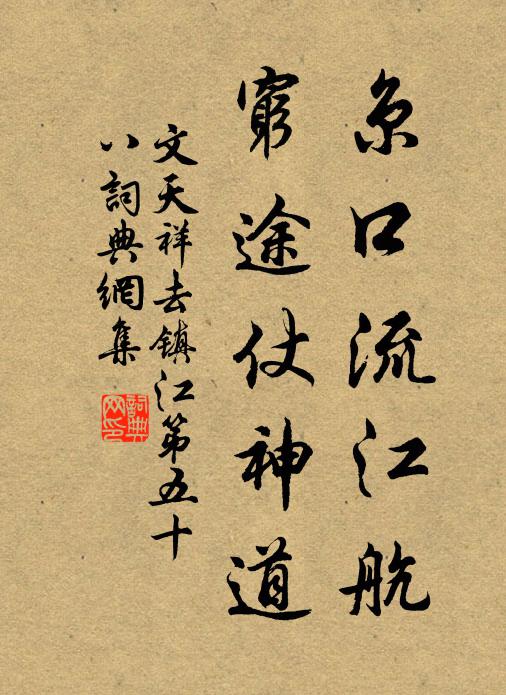 京口流江航
窮途仗神道
文天祥去鎮江第五十
八詞典網集
詞典網印